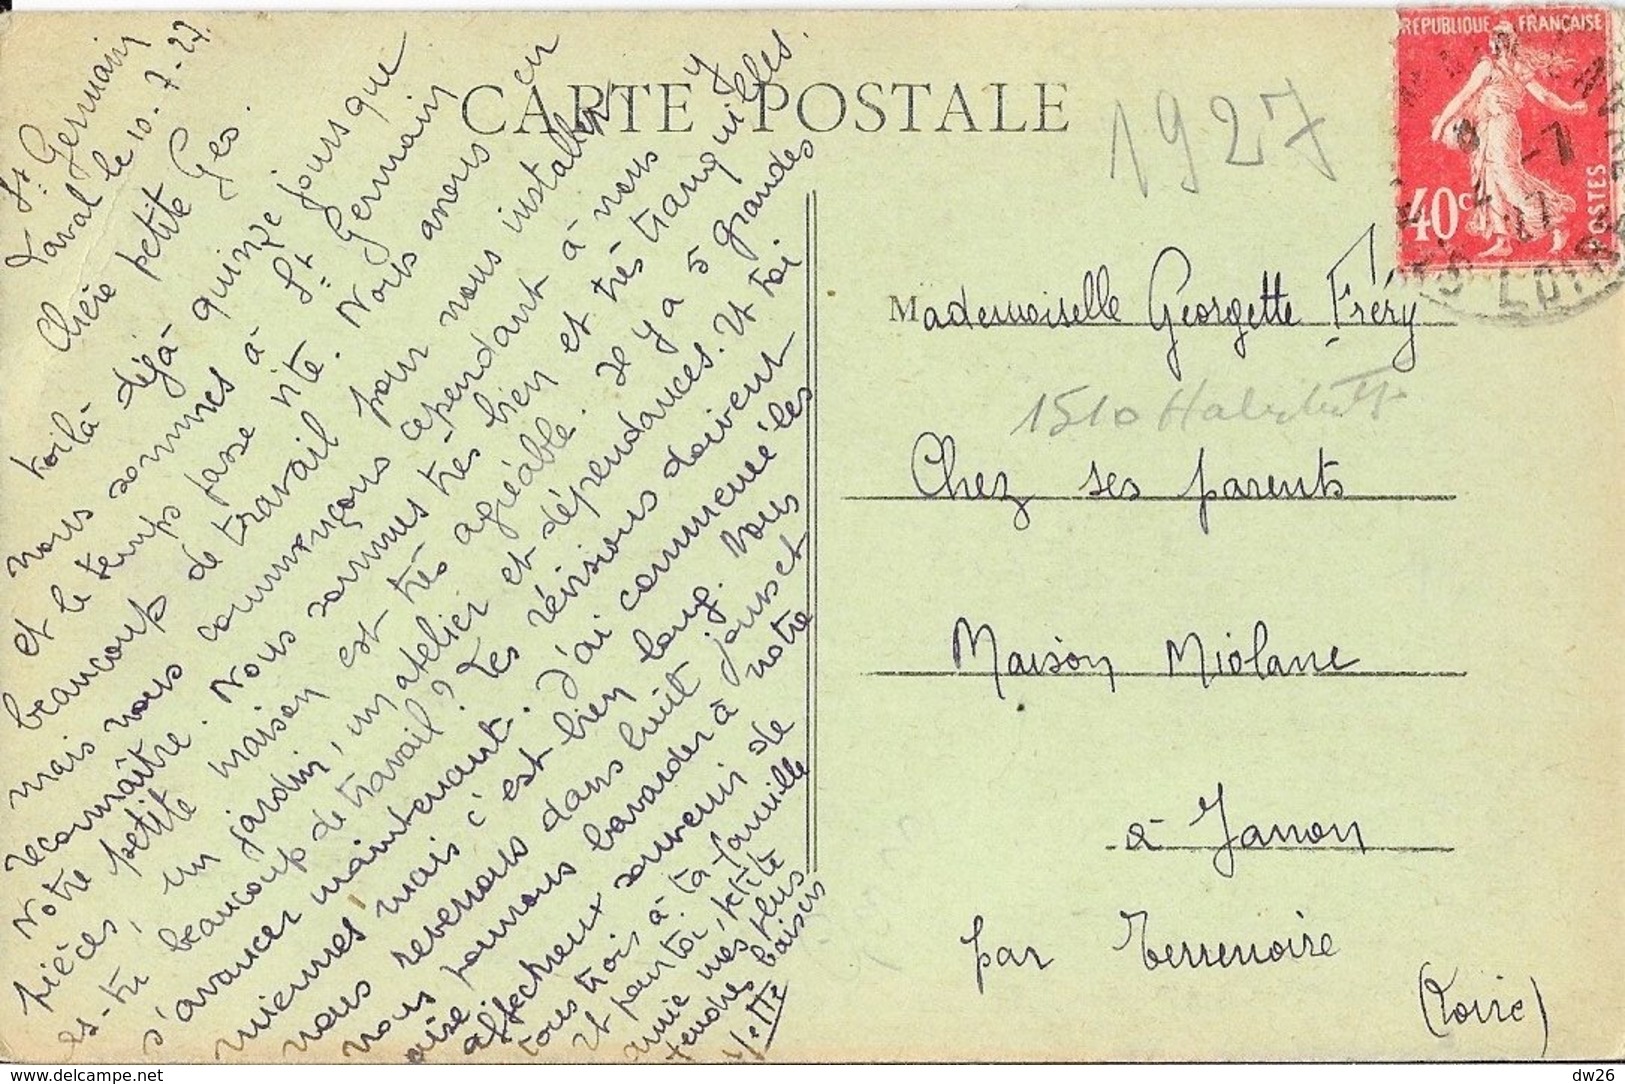 CARTE POSTALE
1927
REPUBLIQUE FRANÇAISE
40c
POSTES
-7
27
LOIRE
St Germain
Laval le 10-7-27.
Chère petite Geo.
Voilà déjà quinze jours que
nous sommes à St Germain
et le temps passe vite. Nous avons eu
beaucoup de travail pour nous installer
mais nous commençons cependant à nous y
reconnaître. Nous sommes très bien et très tranquilles.
Notre petite maison est très agréable. Il y a 5 grandes
pièces, un jardin, un atelier et dépendances. Et toi
as-tu beaucoup de travail? Tes révisions doivent
s'avancer maintenant. J'ai commencé les
miennes mais c'est bien long. Nous
nous reverrons dans huit jours et
nous pourrons bavarder à notre
aise
affectueux souvenir de
tous trois à ta famille
Et pour toi, petite
amie mes plus
tendres baisers
Mademoiselle Georgette Fréry
1510
Chez ses parents
Maison Miolane
à Janon
par Terrenoire
(Loire)
dw26
delcampe.net